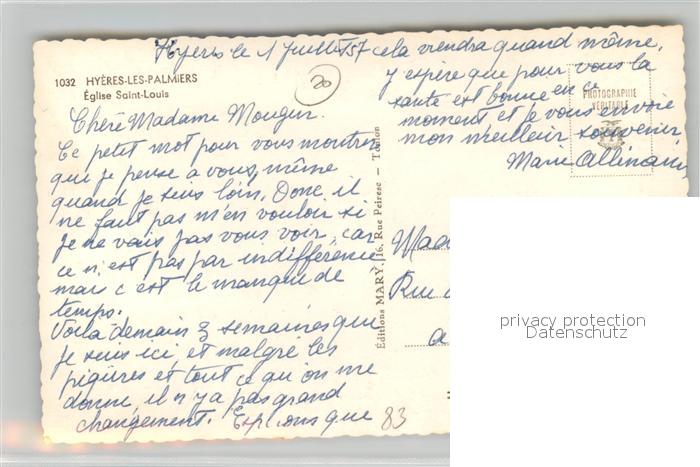 Hyères le 1 Juillet 57
1032 HYÈRES-LES-PALMIERS
Église Saint-Louis
20
Chère Madame Mougin.
Ce petit mot pour vous montrer
que je pense a vous, même
quand je suis loin. Donc il
ne faut pas m'en vouloir si
je ne vais pas vous voir, car
ce n'est pas par indifférence
mais c'est le manque de
temps.
Voila demain 3 semaines que
je suis ici, et malgré les
piqûres et tout ce qu'on me
donne, il n'y a pas grand
changement. Espérons que
cela viendra quand même,
J'espère que pour vous la
santé est bonne en ce
moment et je vous envoie
mon meilleur souvenir
Marie
PHOTOGRAPHIE
VÉRITABLE
Éditions MARY, 16, Rue Peiresc — Toulon
Mad
Rue
a
83
privacy protection
Datenschutz